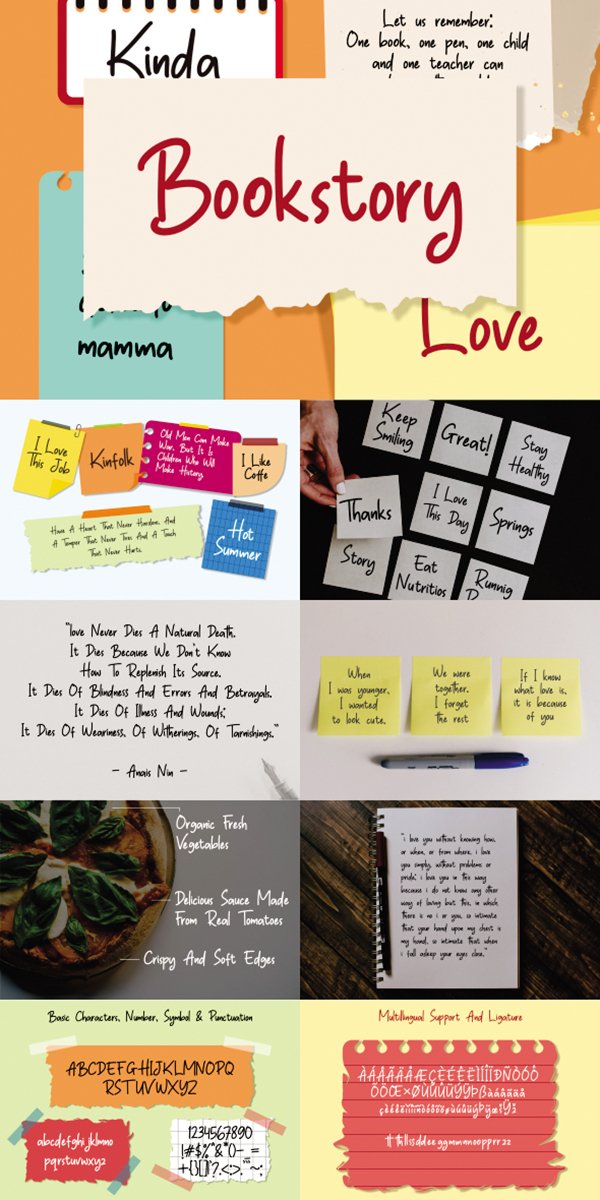 Kinda
Let us remember:
One book, one pen, one child
and one teacher can
Bookstory
mamma
Love
I Love
This Job
Kinfolk
Old Men Can Make
War, But It Is
Children Who Will
Make History.
I Like
Coffe
Have A Heart That Never Hardens, And
A Temper That Never Tires, And A Touch
That Never Hurts.
Hot
Summer
Keep
Smiling
Great!
Stay
Healthy
Thanks
I Love
This Day
Springs
Story
Eat
Nutritios
Runnig
"love Never Dies A Natural Death.
It Dies Because We Don't Know
How To Replenish Its Source.
It Dies Of Blindness And Errors And Betrayals.
It Dies Of Illness And Wounds;
It Dies Of Weariness, Of Witherings, Of Tarnishings."
- Anais Nin -
When
I was younger,
I wanted
to look cute.
We were
together.
I forget
the rest
If I know
what love is,
it is because
of you
Organic Fresh
Vegetables
Delicious Sauce Made
From Real Tomatoes
Crispy And Soft Edges
"i love you without knowing how,
or when, or from where. i love
you simply, without problems or
pride: i love you in this way
because i do not know any other
way of loving but this, in which
there is no i or you, so intimate
that your hand upon my chest is
my hand, so intimate that when
i fall asleep your eyes close."
Basic Characters, Number, Symbol & Punctuation
ABCDEFGHIJKLMNOPQ
RSTUVWXYZ
abcdefghijklmno
pqrstuvwxyz
1234567890
Multilingual Support And Ligature